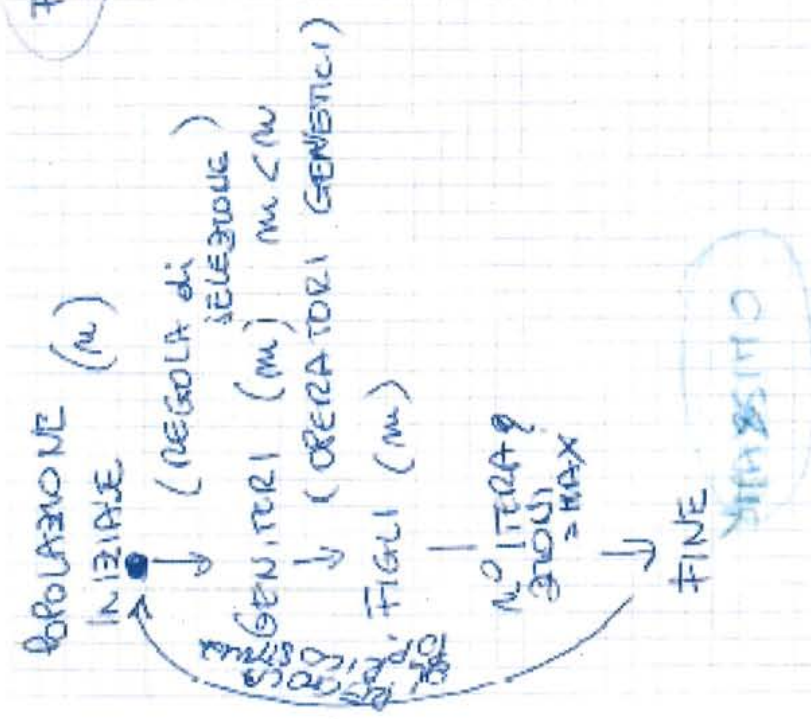 POPOLAZIONE (n)
INIZIALE
(REGOLA di
SELEZIONE)
GENITORI (m) m < n
(OPERATORI GENETICI)
FIGLI (m)
N° ITERA
ZIONI
= MAX
?
FINE
REGOLA
DI RICOSTRUZ
POP.